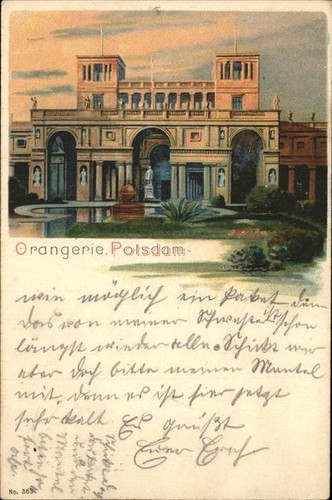 Orangerie. Potsdam
wie möglich ein Paket denn
das von meiner Schwester ist schon
längst wieder alle. Schickt mir
aber doch bitte meinen Mantel
mit, denn es ist hier jetzt
sehr kalt. Es grüßt
Euer
No. 363.